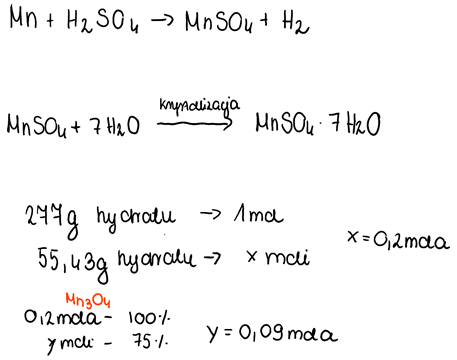 Mn + H₂SO₄ → MnSO₄ + H₂
MnSO₄ + 7H₂O krystalizacja → MnSO₄ · 7H₂O
277g hydratu → 1mol
55,43g hydratu → x moli
x = 0,2mola
Mn₃O₄
0,2mola - 100%
y moli - 75%
y = 0,09mola